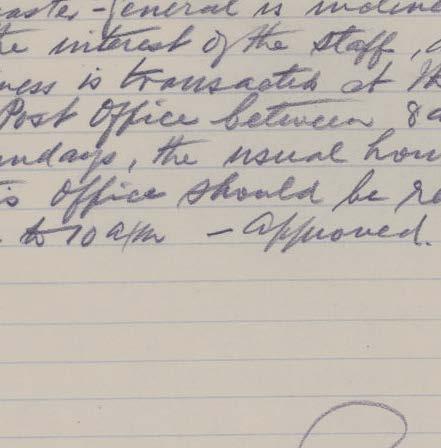 aster-General is incline
he interest of the Staff, a
ness is transacted at th
Post Office between 8 a
undays, the usual hou
is Office should be re
to 10 a/m - Approved.